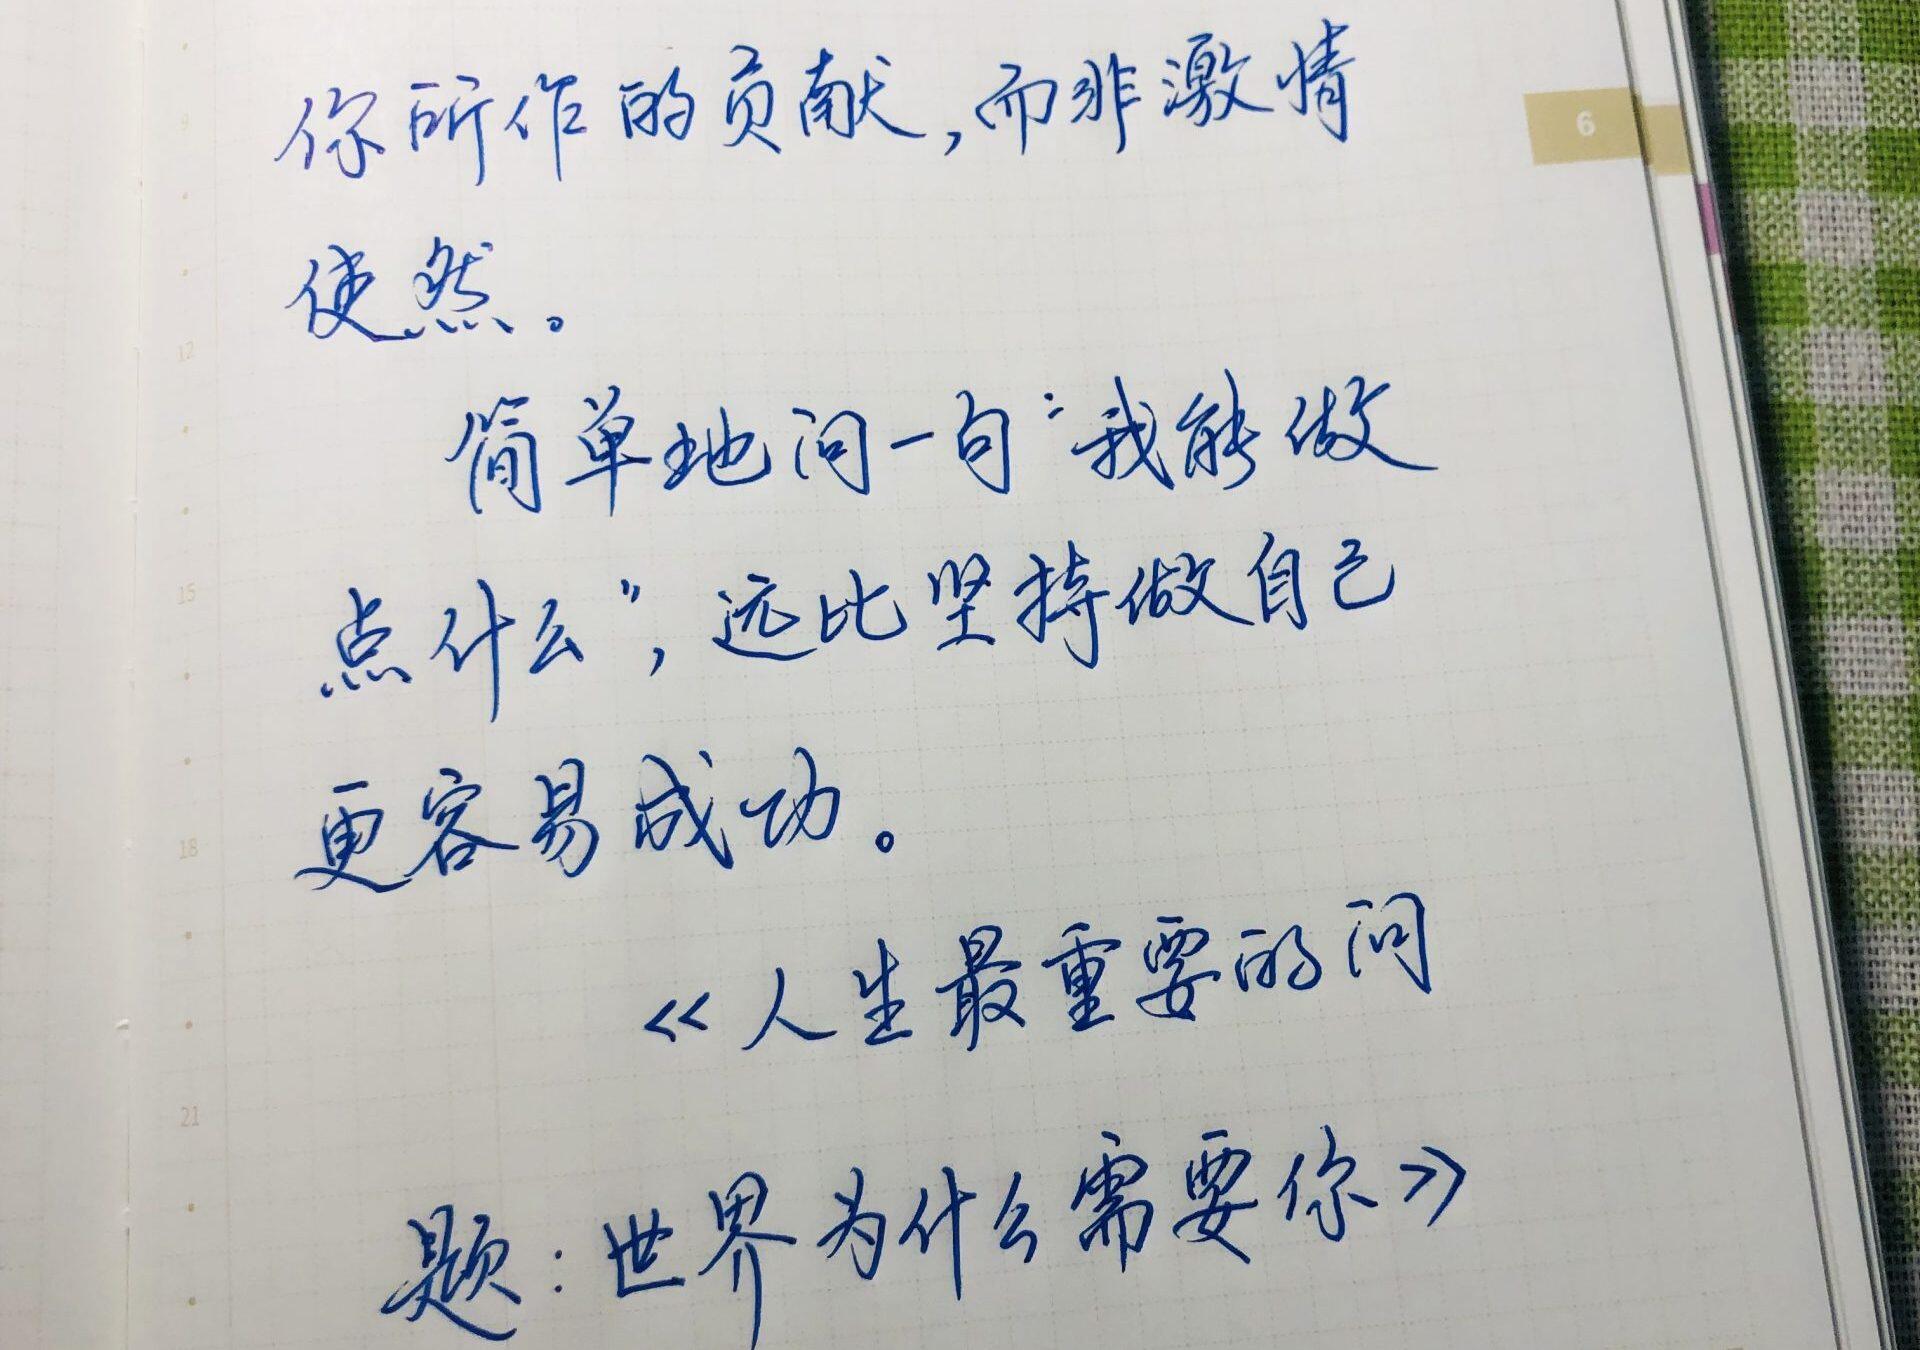 你所作的贡献,而非激情
使然。
简单地问一句“我能做
点什么”,远比坚持做自己
更容易成功。
《人生最重要的问
题:世界为什么需要你》
6
9
12
15
18
21